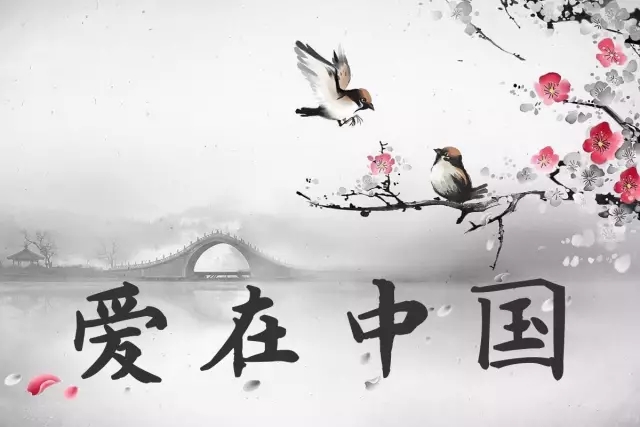 爱在中国